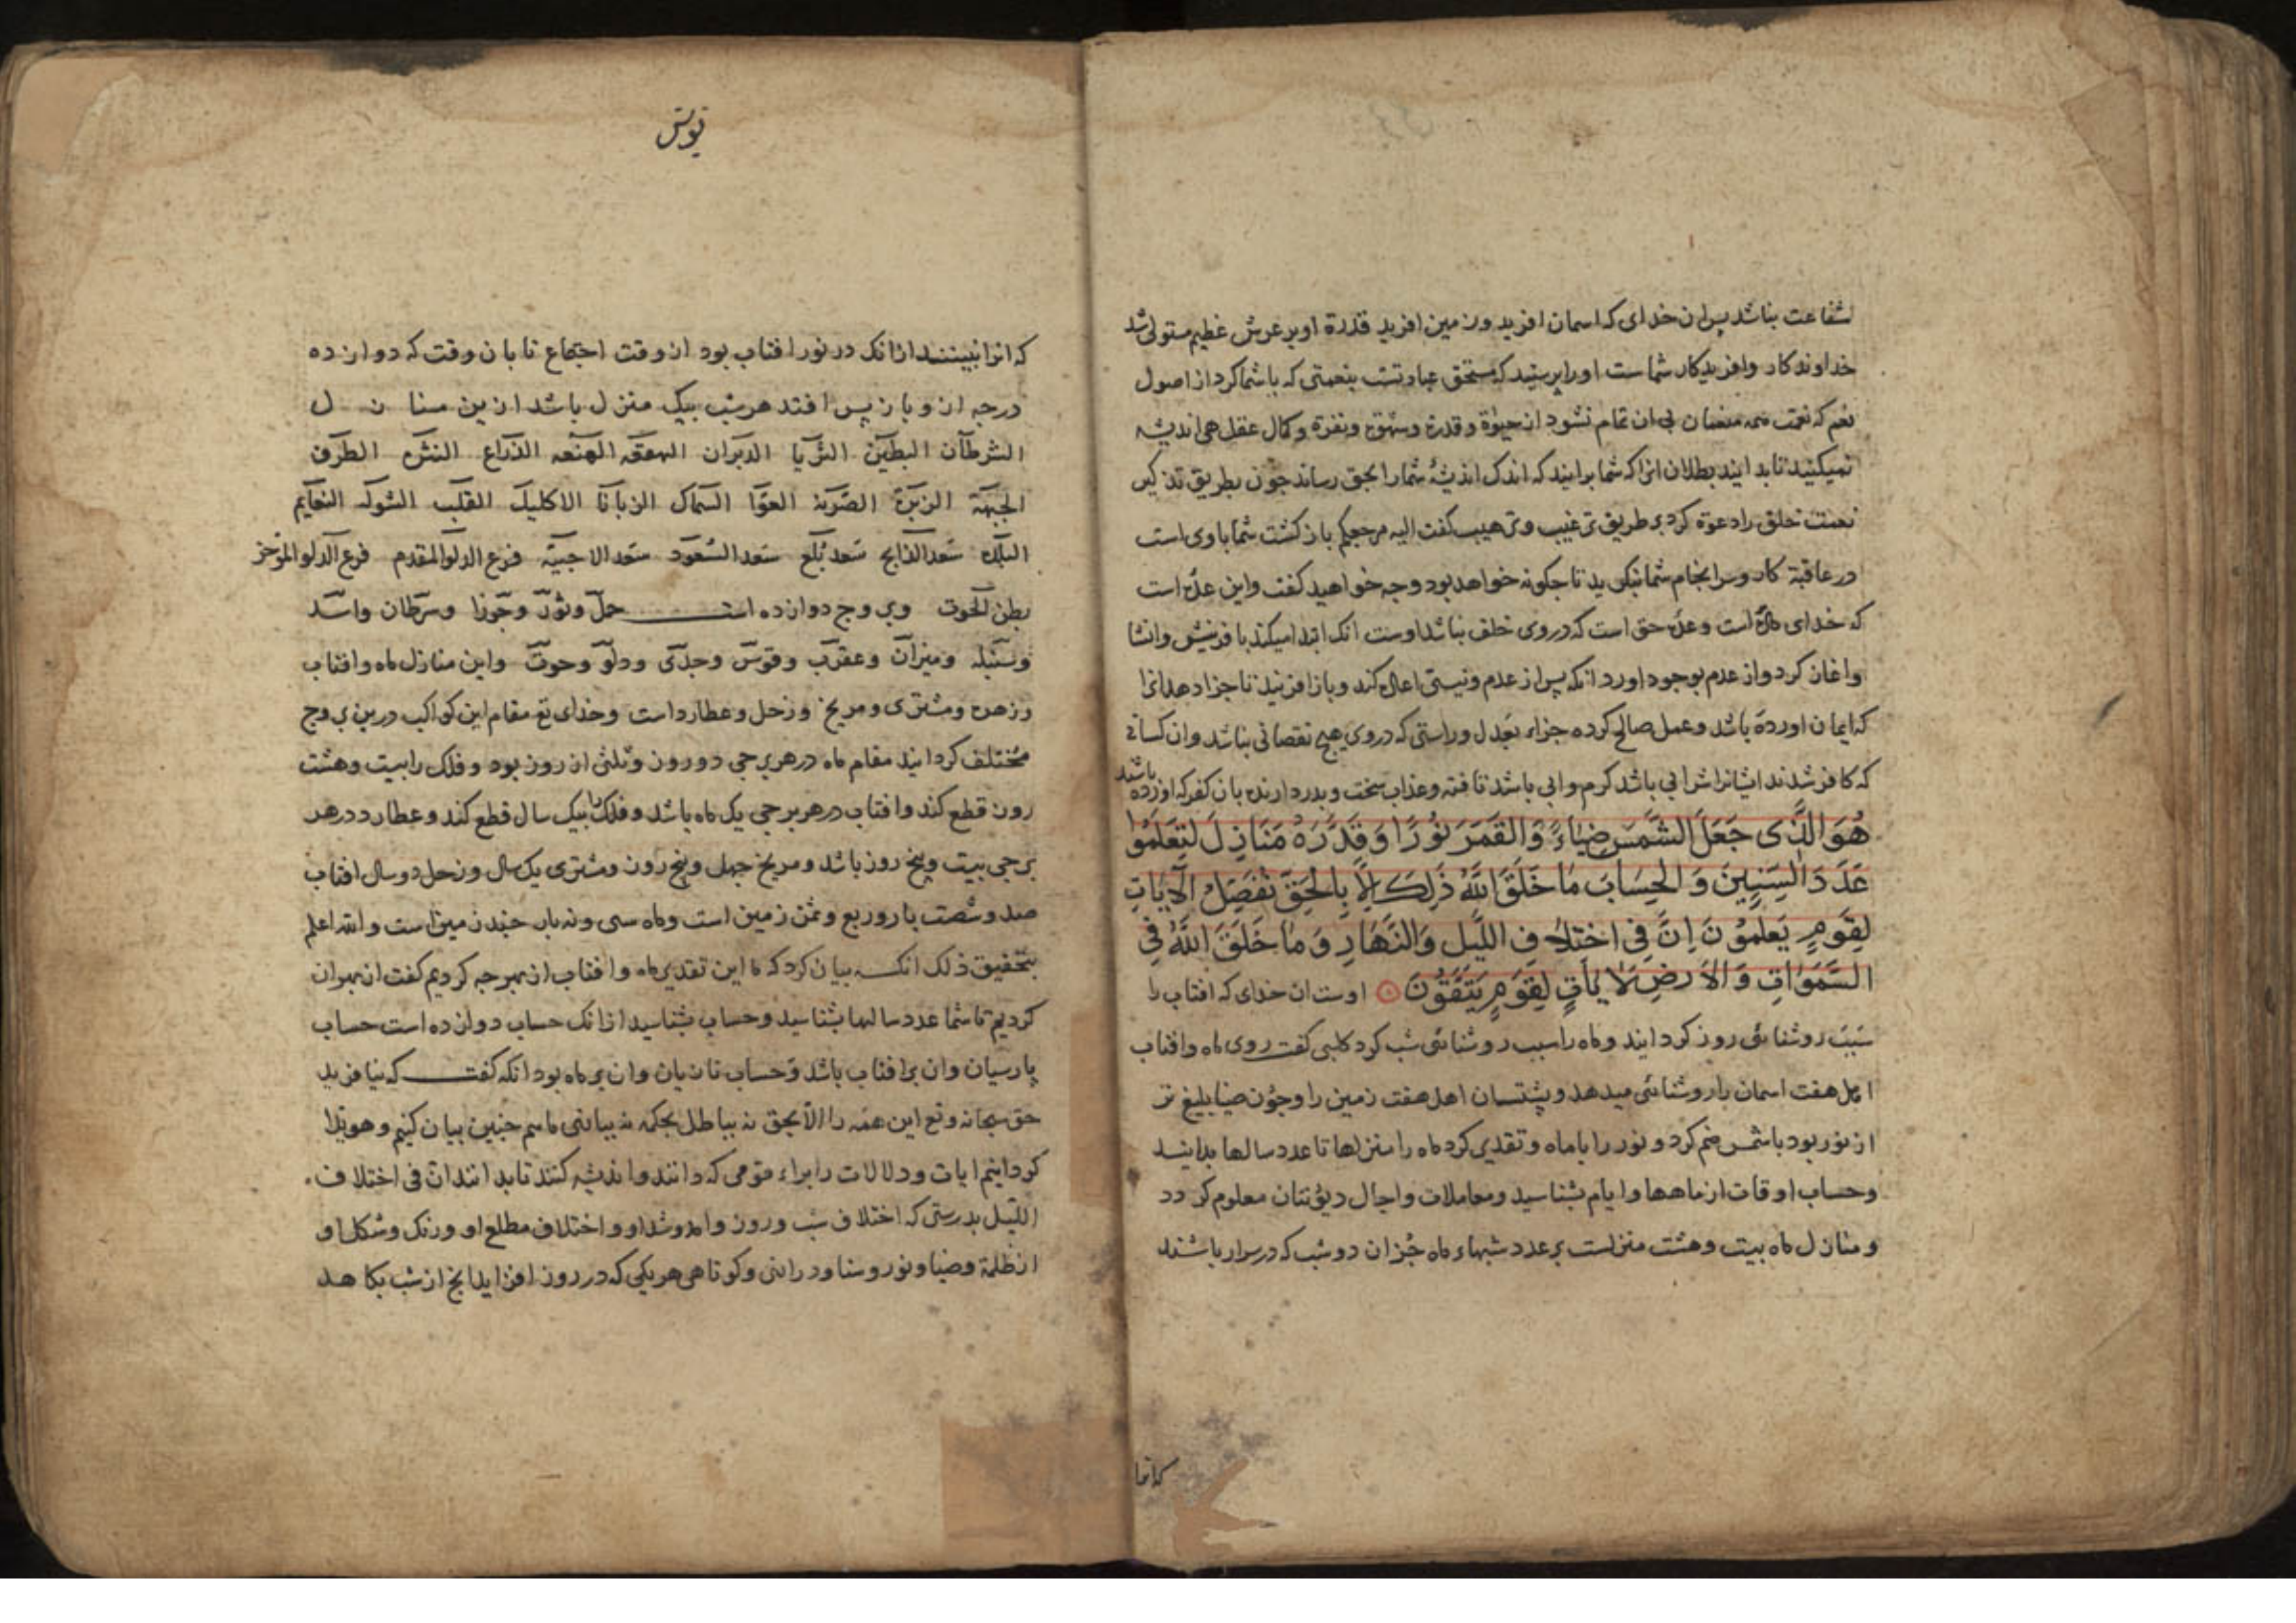 شفاعت نباشد پس ان خدای که اسمان افرید و زمین افرید قدرة او بر عرش عظیم مستولی شد
خداوندکار وافریدکار شماست اورا پرستید که مستحق عبادتست بنعمتی که با شما کرد از اصول
نعم که نعمت همه منعمان بی ان تمام نشود از حیوة و قدرة و شهوة ونفرة و کمال عقل هی اندیشه
نمیکنید تا بدانید بطلان انرا که شما برانید که اندک اندیشهٔ شمارا بحق رساند چون بطریق تذکیر
نعمت خلق را دعوة کرد بر طریق ترغیب و ترهیب کفت الیه مرجعکم بازکشت شما باوی است
در عاقبة کار وسرانجام شما بنکرید تا چکونه خواهد بود وچه خواهید کفت واین عدّه است
که خدای داده است وعده حق است که در وی خلف نباشد اوست انک ابتدا میکند بافرینش وانشا
واغاز کرد واز عدم بوجود اورد انکه پس از عدم ونیستی اعاده کند وباز افریند تا جزا دهد انرا
که ایمان اورده باشد وعمل صالح کرده جزاء بعدل وراستی که دروی هیچ نقصانی نباشد وان کسانی
که کافر شدند ایشانرا شرابی باشد کرم وابی باشد تافته وعذاب سخت و بدرد ارنده بان کفر که اورده باشند
هُوَ الَّذی جَعَلَ الشَّمسَ ضِیاءً وَالقَمَرَ نُورًا وَقَدَّرَهُ مَنَازِلَ لِتَعلَمُوا
عَدَدَ السِّنِینَ وَالحِسَابَ مَا خَلَقَ اللّهُ ذَلِکَ اِلَّا بِالحَقِّ نُفَصِّلُ الآیَاتِ
لِقَومٍ یَعلَمُونَ اِنَّ فِی اختِلَافِ اللَّیلِ وَالنَّهَارِ وَمَا خَلَقَ اللّهُ فِی
السَّمَوَاتِ وَالاَرضِ لَایَاتٍ لِقَومٍ یَتَّقُونَ اوست ان خدای که افتاب را
سَبَب روشنائی روز کردانید وماه را سبب روشنائی شب کرد کلبی کفت روی ماه وافتاب
اهل هفت اسمان را روشنائی میدهد و پشتشان اهل هفت زمین را وچون ضیا بلیغ تر
از نور بود با شمس ضم کرد و نور را با ماه و تقدیر کرد ماه را منزلها تا عدد سالها بدانید
وحساب اوقات از ماهها وایام بشناسید ومعاملات واجال دیونتان معلوم کردد
ومنازل ماه بیست وهشت منزلست بر عدد شبهاء ماه جُز ان دو شب که در سرار باشند
که انرا
یونس
که انرا نبینند ازانک در نور افتاب بود از وقت اجتماع تا بان وقت که دوازده
درجه از و باز پس افتد هر شب بیک منزل باشد ازین منازل
الشرطان البطین الثریا الدبران الهقعه الهنعه الذراع النثره الطرف
الجبهة الزبرة الصّرفة العوّا السماک الزبانا الاکلیل القلب الشوله النعایم
البلده سَعد الذابح سَعد بُلَع سَعد السّعود سعد الاخبیة فرع الدلو المقدم فرع الدلو المؤخر
بطن الحوت وبروج دوازده است حمل وثور وجوزا وسرطان واسد
وسنبله ومیزان وعقرب وقوس وجدی ودلو وحوت واین منازل ماه وافتاب
وزهره ومشتری ومریخ وزحل وعطارداست وخدای تع مقام این کواکب درین بروج
مختلف کردانید مقام ماه در هر برجی دو روز وثلثی از روز بود و فلک را بیست وهشت
روز قطع کند وافتاب در هر برجی یک ماه باشد وفلک را بیک سال قطع کند وعطارد در هر
برجی بیست وپنج روز باشد ومریخ چهل وپنج روز ومشتری یک سال وزحل دو سال افتاب
صد وشصت بار وربع وثمن زمین است وماه سی ونه بار چند زمین است والله اعلم
بتحقیق ذلک انکه بیان کرد که ما این تقدیر ماه وافتاب از بهر چه کردیم کفت از بهر ان
کردیم تا شما عدد سالها بشناسید وحساب بشناسید ازانک حساب دوازده است حساب
پارسیان وان بر افتاب باشد وحساب تازیان وان بر ماه بود انکه کفت که نیافرید
حق سبحانه وتع این همه را الّا بحق نه بباطل بحکمه نه ببازی ماهم چنین بیان کنیم وهویدا
کردانیم ایات ودلالات را براء قومی که دانند واندیشه کنند تا بدانند انّ فی اختلاف
اللّیل بدرستی که اختلاف شب وروز وامد وشد او واختلاف مطلع او ورنک وشکل او
از ظلمة وضیا ونور وسنا ودرازی وکوتاهی هر یکی که در روز افزاید انچ از شب بکاهد